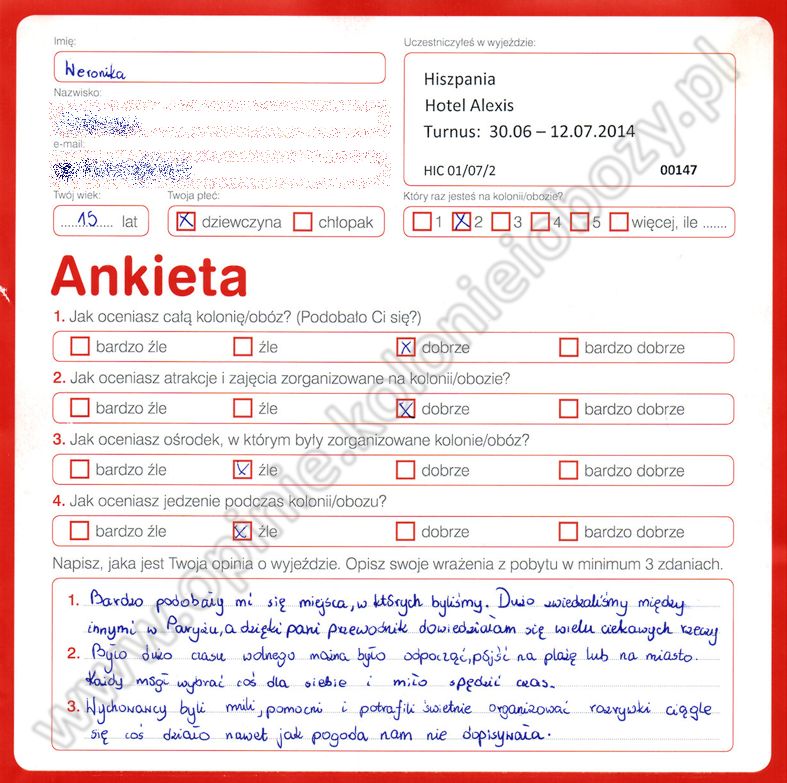 Imię:
Weronika
Nazwisko:
e-mail:
Twój wiek:
15 lat
Twoja płeć:
dziewczyna chłopak
Uczestniczyłeś w wyjeździe:
Hiszpania
Hotel Alexis
Turnus: 30.06 – 12.07.2014
HIC 01/07/2 00147
Który raz jesteś na kolonii/obozie?
1 2 3 4 5 więcej, ile .......
Ankieta
1. Jak oceniasz całą kolonię/obóz? (Podobało Ci się?)
bardzo źle źle dobrze bardzo dobrze
2. Jak oceniasz atrakcje i zajęcia zorganizowane na kolonii/obozie?
bardzo źle źle dobrze bardzo dobrze
3. Jak oceniasz ośrodek, w którym były zorganizowane kolonie/obóz?
bardzo źle źle dobrze bardzo dobrze
4. Jak oceniasz jedzenie podczas kolonii/obozu?
bardzo źle źle dobrze bardzo dobrze
Napisz, jaka jest Twoja opinia o wyjeździe. Opisz swoje wrażenia z pobytu w minimum 3 zdaniach.
1. Bardzo podobały mi się miejsca, w których byliśmy. Dużo zwiedzaliśmy między
innymi w Paryżu, a dzięki pani przewodnik dowiedziałam się wielu ciekawych rzeczy
2. Było dużo czasu wolnego można było odpocząć, pójść na plażę lub na miasto.
Każdy mógł wybrać coś dla siebie i miło spędzić czas.
3. Wychowawcy byli mili, pomocni i potrafili świetnie organizować rozrywki ciągle
się coś działo nawet jak pogoda nam nie dopisywała.
www.opinie.kolonieiobozy.pl